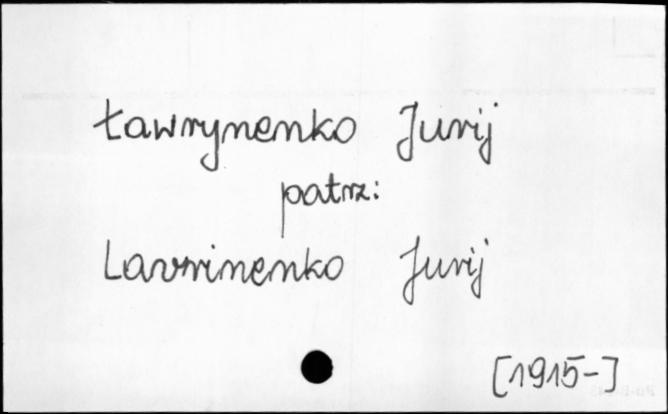 Ławrynenko Jurij
patrz:
Lavrinenko Jurij
[1915-]